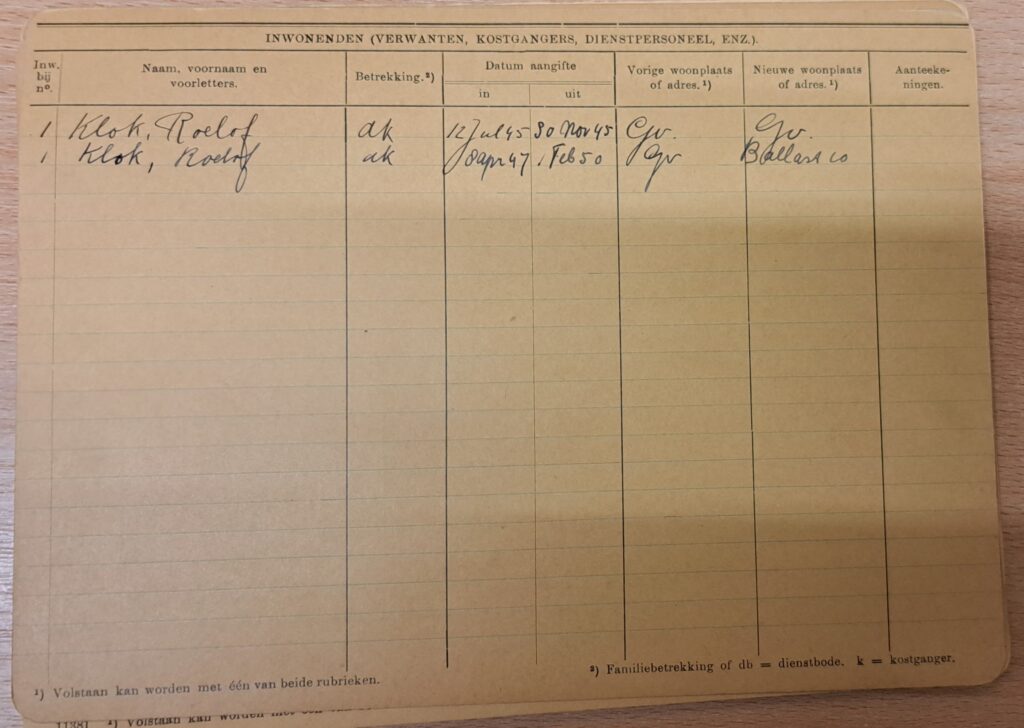 INWONENDEN (VERWANTEN, KOSTGANGERS, DIENSTPERSONEEL, ENZ.).
Inw. bij nº. Naam, voornaam en voorletters. Betrekking.²) Datum aangifte in uit Vorige woonplaats of adres.¹) Nieuwe woonplaats of adres.¹) Aanteekeningen.
1 Klok, Roelof dk 12 Jul 45 30 Nov 45 Gv. Gv.
1 Klok, Roelof dk 8 apr 47 1 Feb 50 Gv Ballast 10
²) Familiebetrekking of db = dienstbode. k = kostganger.
¹) Volstaan kan worden met één van beide rubrieken.
11381 ¹) Volstaan kan worden met één van